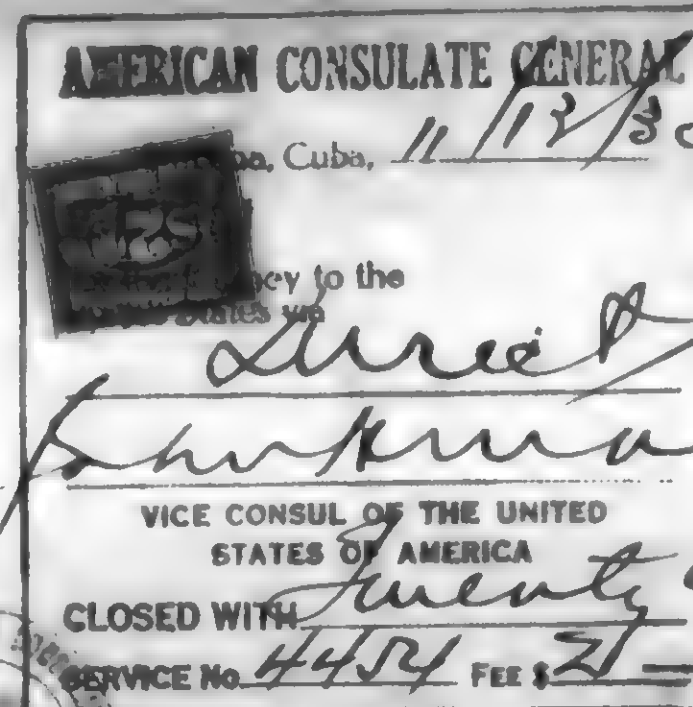 AMERICAN CONSULATE GENERAL
Cuba, 11/12/3
to the
States
Direct
VICE CONSUL OF THE UNITED
STATES OF AMERICA
CLOSED WITH Twenty
SERVICE No. 4454 FEE $ 21 —